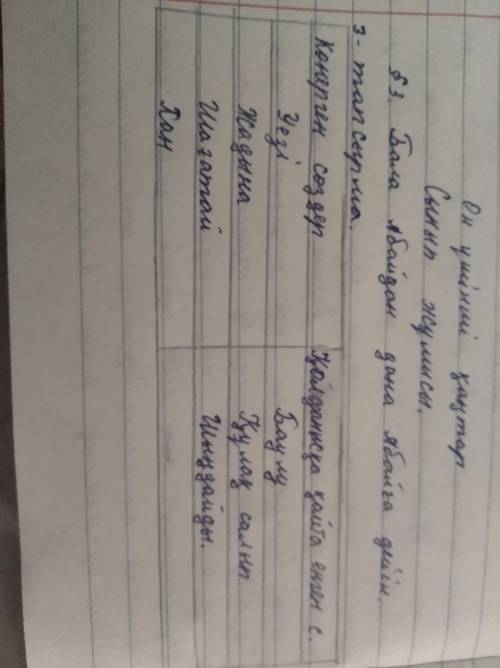 Он үшінші қаңтар
Сынып жұмысы.
§3. Бала Абайдан дана Абайға дейін.
3-тапсырма.
Көнерген сөздер Қолданысқа қайта енген с.
Уезі Баулу
Жадына Құлақ салып
Шағатай Шыңдайды.
Хан